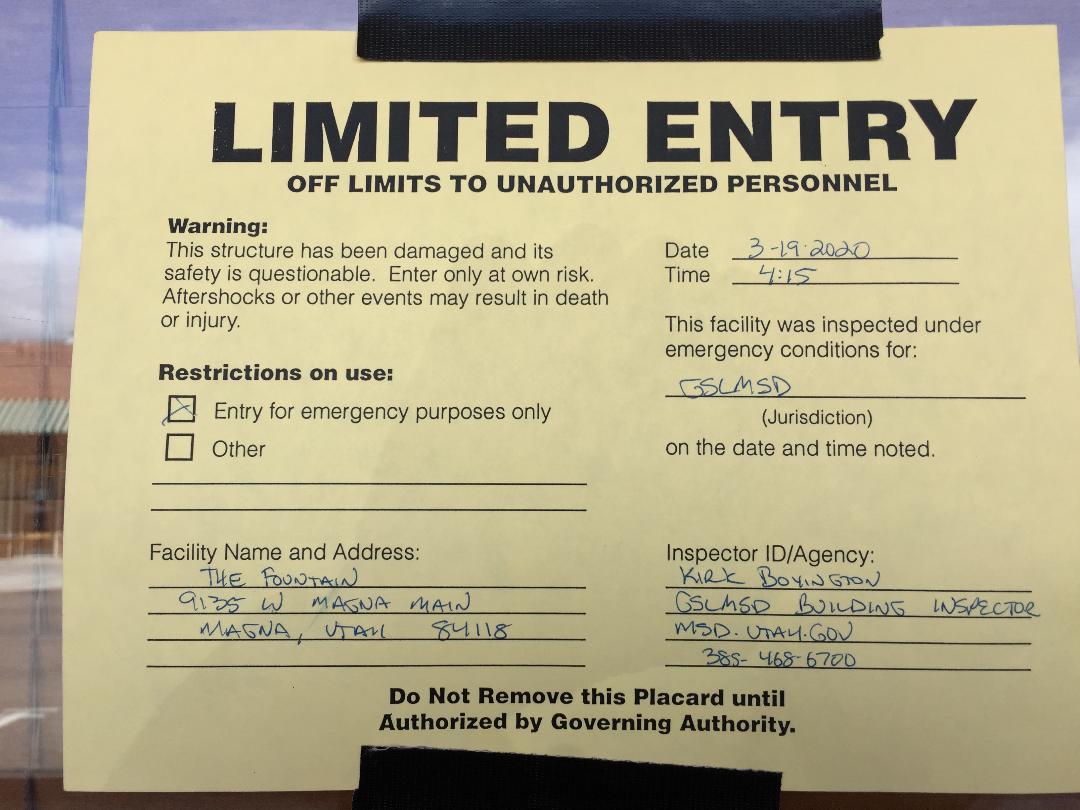 LIMITED ENTRY
OFF LIMITS TO UNAUTHORIZED PERSONNEL
Warning:
This structure has been damaged and its
safety is questionable. Enter only at own risk.
Aftershocks or other events may result in death
or injury.
Date 3-19-2020
Time 4:15
This facility was inspected under
emergency conditions for:
GSLMSD
(Jurisdiction)
on the date and time noted.
Restrictions on use:
Entry for emergency purposes only
Other
Facility Name and Address:
THE FOUNTAIN
9135 W MAGNA MAIN
MAGNA, UTAH 84118
Inspector ID/Agency:
KIRK BOYINGTON
GSLMSD BUILDING INSPECTOR
MSD.UTAH.GOV
385-468-6700
Do Not Remove this Placard until
Authorized by Governing Authority.